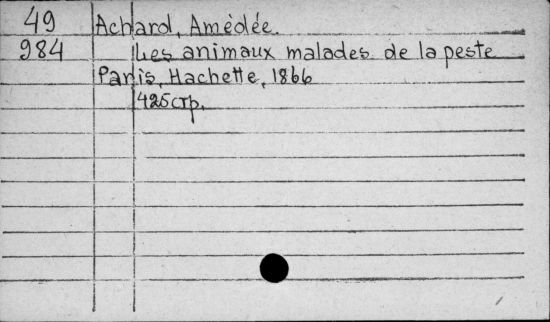 49 Achard, Amédée.
984 Les animaux malades de la peste
Paris, Hachette, 1866
425 стр.